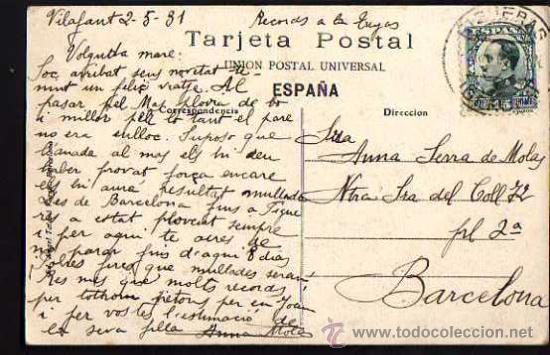 Vilafant 2-5-31
Records a la
Tarjeta Postal
UNION POSTAL UNIVERSAL
ESPAÑA
Correspondencia
Direccion
Volguda mare:
Soc arribat sens novetat te-
nint un feliç viatge. Al
pasar pel Mas plovia de bo
i millor pel tant el pare
no era enlloc. Suposo que
llanada al mas els hi deu
haber provat força encare
els hi aurá resultat mullada
Des de Barcelona fins a Figue
res a estat plovent sempre
i per aqui te aires de
no parar fins d'aqui 8 dias
força que mullades seran
Res mes que molts records
per tothom petons per en Joan
i per vos l'estimació de
la seva filla Anna Molas
Sra
Anna Serra de Molas
Ntra Sra del Coll 72
pl 2ª
Barcelona
www.todocoleccion.net